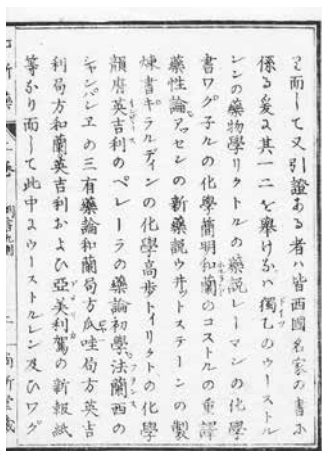 ヿ而して又引證ある者ハ皆西國名家の書ふ
係る爰又其一二を擧けるハ獨乙のウーストル
レンの藥物學リクトルの藥説レーマンの化學
書ワグ子ルの化學簡明和蘭のコストルの重譯
藥性論アッセレの新藥説ウ井ットステーンの製
煉書ギラルディンの化學高歩トイリクトの化學
韻府英吉利のペレーラの藥論初學法蘭西の
シャンパレヱの三有藥論和蘭局方瓜哇局方英吉
利局方和蘭英吉利および亞美利駕の新報紙
等なり而して此中ヱウーストルレン及ひワグ